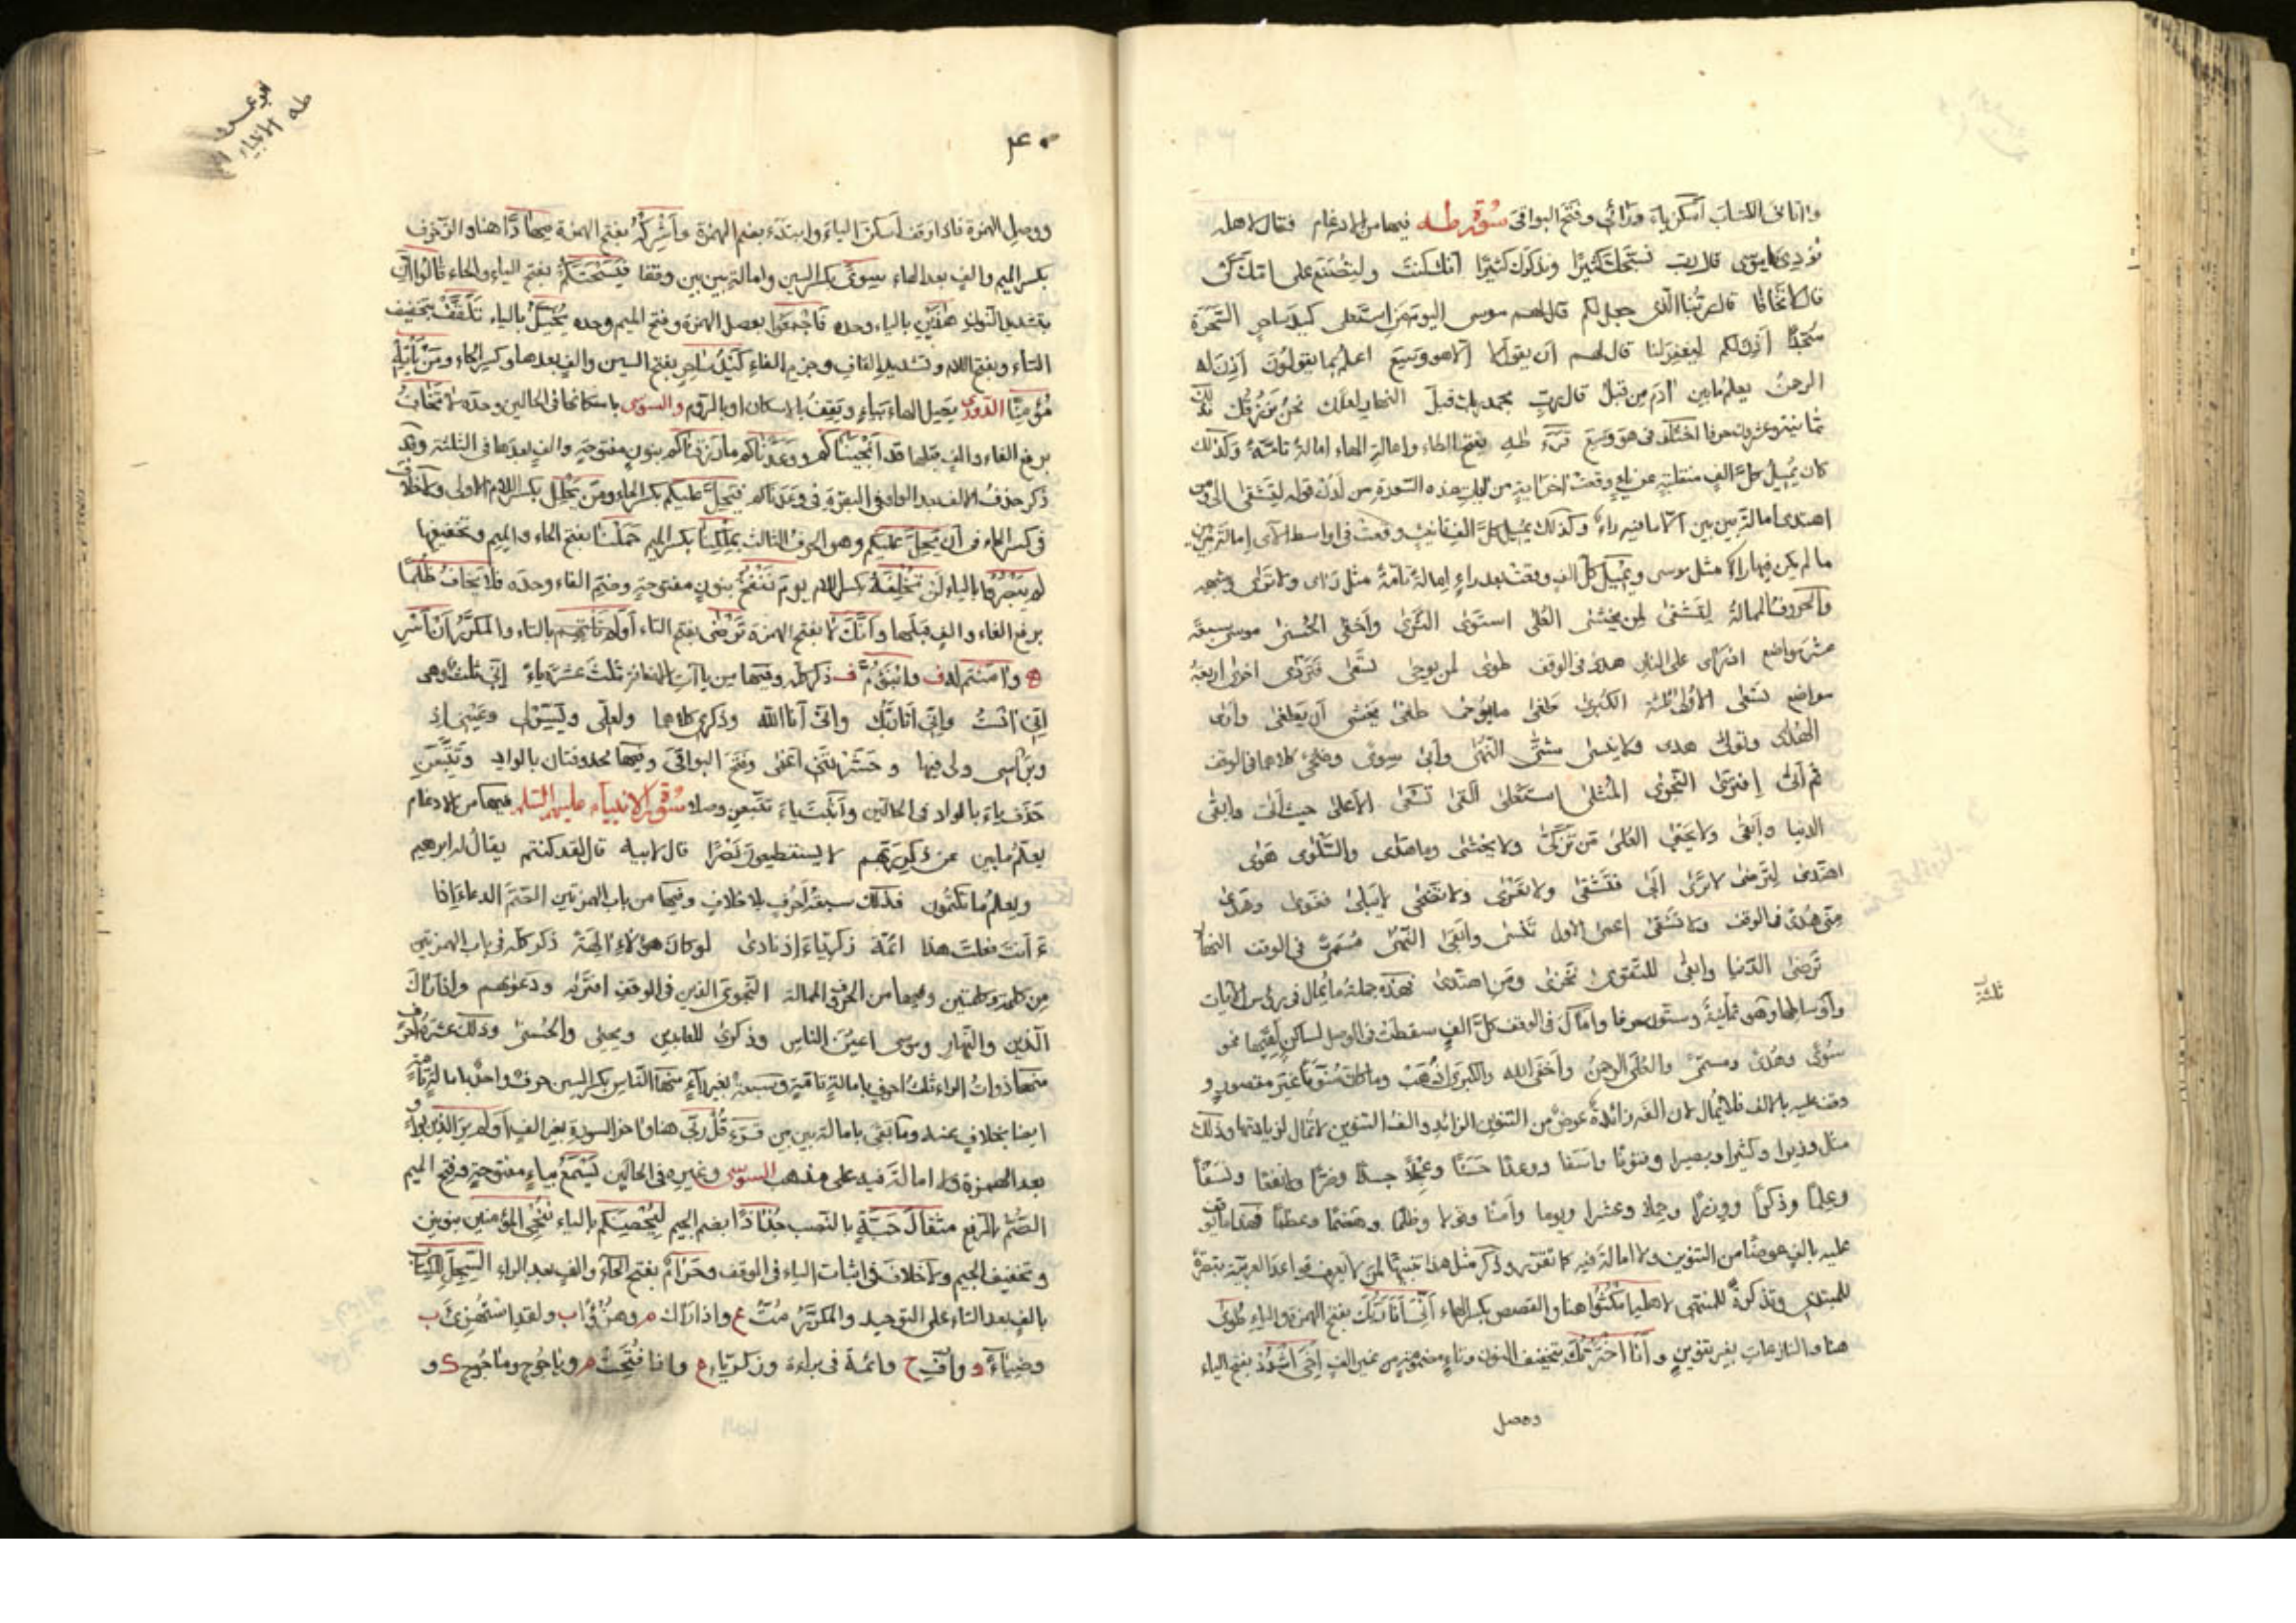 واتاني الكتاب أسكن ياء ورائي وفتح البواقي سورة طه فيها من الادغام فقال لاهله
نودي يا موسى قال رب نسبحك كثيرا ونذكرك كثيرا انك كنت ولتصنع على امك كي
قال لا تخافا قال ربنا الذي جعل لكم قال لهم موسى اليوم من استعلى كيد ساحر السحرة
سجدا آذن لكم ليغفر لنا قال لهم ان يقول لا الا هو وسع اعلم بما يقولون اذن له
الرحمن يعلم ما بين آدم من قبل قال رب بحمد ربك قبل النهار لعلك نحن نرزقك فذلك
ثمانية وعشرون حرفا اختلف في هو وسع قرء طه بفتح الطاء وامالة الهاء امالة تامة وكذلك
كان يميل كل الف منقلبة عن ياء وقعت اخر اية من ايات هذه السورة من لدن قوله لتشقى الى ومن
اهتدى امالة بين بين الا ما فيه راء وكذلك يميل كل الف تانيث وقعت في اواسط الآي امالة بين بين
ما لم يكن فيها راء مثل موسى ويميل كل الف وقعت بعد راء امالة تامة مثل راى ولا ترى وشبهه
والحروف الممالة لتشقى لمن يخشى العلى استوى الثرى وأخفى الحسنى موسى سبعة
عشر مواضع اذ راى على النار هدى في الوقف طوى لما يوحى تسعى فتردى اخرى اربعة
مواضع تسعى الاولى ثلثة الكبرى طغى ما يوحى طغى يخشى أن يطغى وأرى
الهدى وتولى هدى ولا ينسى شتى النهى وأبى سوى وضحى كلاهما في الوقف
ثم أتى افترى النجوى المثلى استعلى ألقى تسعى الأعلى حيث أتى وابقى
الدنيا وأبقى ولا يحيى العلى من تزكى ولا يخشى وما هدى والسلوى هوى
اهتدى لترضى لا ترى ابى فتشقى ولا تعرى ولا تضحى لا يبلى فغوى وهدى
مني هدى في الوقف ولا تشقى اعمى الأول تنسى وابقى النهى مسمى في الوقف النهار
ترضى الدنيا وابقى للتقوى نخزى ومن اهتدى فهذه جملة ما يمال في رؤس الآيات
ثلثة
وأوساطها وهي ثمانية وستون حرفا وأمال في الوقف كل الف سقطت في الوصل لساكن لقيها نحو
سوى وهدى ومسمى والعلى الرحمن وأخفى الله والكبرى اذهب وما كان منونا غير مقصور و
وقف عليه بالالف فلا يمال لان الفه زائدة عوض من التنوين الزائد والف التنوين لا تمال لزيادتها وذلك
مثل وزيرا وكثيرا وبصيرا وفتونا واسفا ووعدا حسنا وعجلا جسدا وضرا ولا نفعا ونسفا
وعلما وذكرا ووزرا وحملا وعشرا ويوما وأمتا وقولا وظلما وهضما وعظما
عليه بالف عوضا من التنوين ولا امالة فيه كما تقرر وذكر مثل هذا تنبيها لمن لا يعرف قواعد العربية تبصرة
للمبتدي وتذكرة للمنتهي لاهله امكثوا هنا والقصص بكسر الهاء أني أنا ربك بفتح الهمزة والياء طوى
هنا والنازعات بغير تنوين وأنا اخترتك بتخفيف النون وتاء مضمومة من غير الف اخي اشدد بفتح الياء
ووصل
ابو عمرو
طه الانبياء
٤٠
ووصل الهمزة فاذا وقف أسكن الياء وابتدء بضم الهمزة وأشركه بفتح الهمزة مهادا هنا والزخرف
بكسر الميم والف بعد الهاء سوى بكسر السين وامالة بين بين وقفا فيسحتكم بفتح الياء والحاء قالوا ان
بتشديد النون هذين بالياء وحده فاجمعوا بوصل الهمزة وفتح الميم وحده يخيل بالياء تلقف بتخفيف
التاء وبفتح اللام وتشديد القاف وجزم الفاء كيد ساحر بفتح السين والف بعدها وكسر الحاء ومن يأته
مؤمنا الدوري يصل الهاء بياء ويقف بالاسكان او بالروم والسوسي باسكانها في الحالين وحده لا تخاف
برفع الفاء والف قبلها قد أنجيناكم ووعدناكم ما رزقناكم بنون مفتوحة والف بعدها في الثلثة وقد
ذكر حذف الالف بعد الواو في البقرة في وعدناكم فيحل عليكم بكسر الحاء ومن يحلل بكسر اللام الاولى ولا خلاف
في كسر الحاء في أن يحل عليكم وهو الحرف الثالث بملكنا بكسر الميم حملنا بفتح الحاء والميم وتخفيفها
لم يبصروا بالياء لن تخلفه بكسر اللام يوم ننفخ بنون مفتوحة وضم الفاء وحده فلا يخاف ظلما
برفع الفاء والف قبلها وأنك لا بفتح الهمزة ترضى بفتح التاء أولم تأتهم بالتاء والمكرر أن أسر
ه وآمنتم له ف وابنؤم ف ذكر كله وفيها من ياآت الاضافة ثلث عشرة ياء إني ثلث وهي
اني انست واني أنا ربك وانني أنا الله وذكري كلاهما ولعلي ويسر لي وعيني اذ
وبرأسي ولي فيها وحشرتني اعمى وفتح البواقي وفيها محذوفتان بالواد وتتبعن
حذف ياء بالواد في الحالين وأثبت ياء تتبعن وصلا سورة الانبياء عليهم السلام فيها من الادغام
يعلم ما بين عن ذكر ربهم لا يستطيعون نصرا قال لابيه قال لقد كنتم يقال له ابرهيم
ويعلم ما تكتمون فذلك سبعة أحرف بلا خلاف وفيها من باب الهمزتين الصم الدعاء اذا
ء أنت فعلت هذا ائمة زكرياء اذ نادى لو كان هؤلاء الهة ذكر كله في باب الهمزتين
من كلمة وكلمتين وفيها من الحروف الممالة النجوى الذين في الوقف افتراه ودعواهم واذا رآك
الذين والنهار وموسى اعين الناس وذكرى للعابدين ويحيى والحسنى وذلك عشرة أحرف
منها ذوات الراء ثلث احرف بامالة تامة وسبعة بغير راء منها الناس بكسر السين حرف واحد بامالة تامة
ايضا بخلاف عنه وما بقي بامالة بين بين قرء قل ربي هنا واخر السورة بغير الف أولم ير الذين بواو
بعد الهمزة ولا امالة فيه على مذهب السوسي وغيره في الحالين يسمع بياء مفتوحة وفتح الميم
الصم بالرفع مثقال حبة بالنصب جذاذا بضم الجيم ليحصنكم بالياء ننجي المؤمنين بنونين
وتخفيف الجيم ولا خلاف في اثبات الياء في الوقف وحرام بفتح الحاء والف بعد الراء السجل للكتاب
بالف بعد التاء على التوحيد والمكرر مت ع واذا رآك م وهزؤا ب ولقد استهزئ ب
وضياء د وأف ح وائمة في براءة وزكرياء م واذا فتحت م وياجوج وماجوج ک و